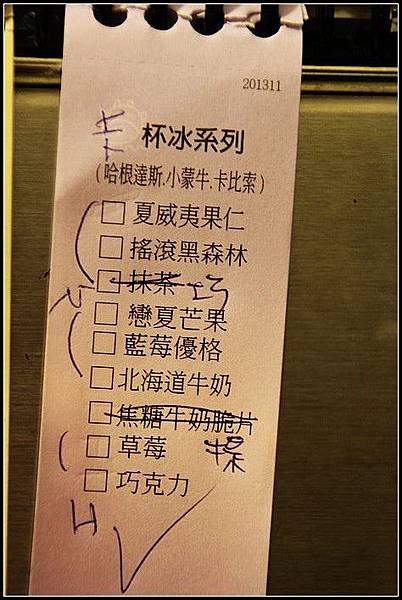 201311
卡 杯冰系列
(哈根達斯.小蒙牛.卡比索)
□ 夏威夷果仁
□ 搖滾黑森林
□ 抹茶 巧
□ 戀夏芒果
□ 藍莓優格
□ 北海道牛奶
□ 焦糖牛奶脆片
□ 草莓
□ 巧克力
H